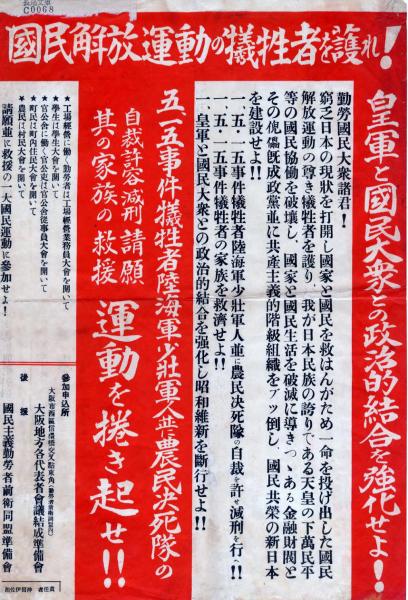 長島文庫
C0068
國民解放運動の犠牲者を護れ!
皇軍と國民大衆との政治的結合を強化せよ!
勤勞國民大衆諸君!
窮乏日本の現狀を打開し國家と國民を救はんがため一命を投げ出した國民
解放運動の尊き犠牲者を護り、我が日本民族の誇りである天皇の下萬民平
等の國民協働を破壊し、國家と國民生活を破滅に導きつゝある金融財閥と
その傀儡既成政黨並に共産主義的階級組織をブッ倒し、國民共榮の新日本
を建設せよ!!
一、五・一五事件犠牲者陸海軍少壯軍人並に農民決死隊の自裁を許せ減刑を行へ!!
一、五・一五事件犠牲者の家族を救濟せよ!!
一、皇軍と國民大衆との政治的結合を強化し昭和維新を斷行せよ!!
五・一五事件犠牲者陸海軍少壯軍人並に農民決死隊の
自裁許容減刑請願
其の家族の救援
運動を捲き起せ!!
★工場經營に働く勤勞者は工場經營業務員大會を開いて
★學生は學生大會を開いて
★官公衙に働く官公吏は官公衙從事員大會を開いて
★町民は町内住民大會を開いて
★農民は村民大會を開いて
請願並に救援の一大國民運動に參加せよ!
參加申込所
大阪市西區信濃橋交叉點東角
大阪地方各代表者會議結成準備會
後援
國民主義勤勞者前衛同盟準備會
責任者